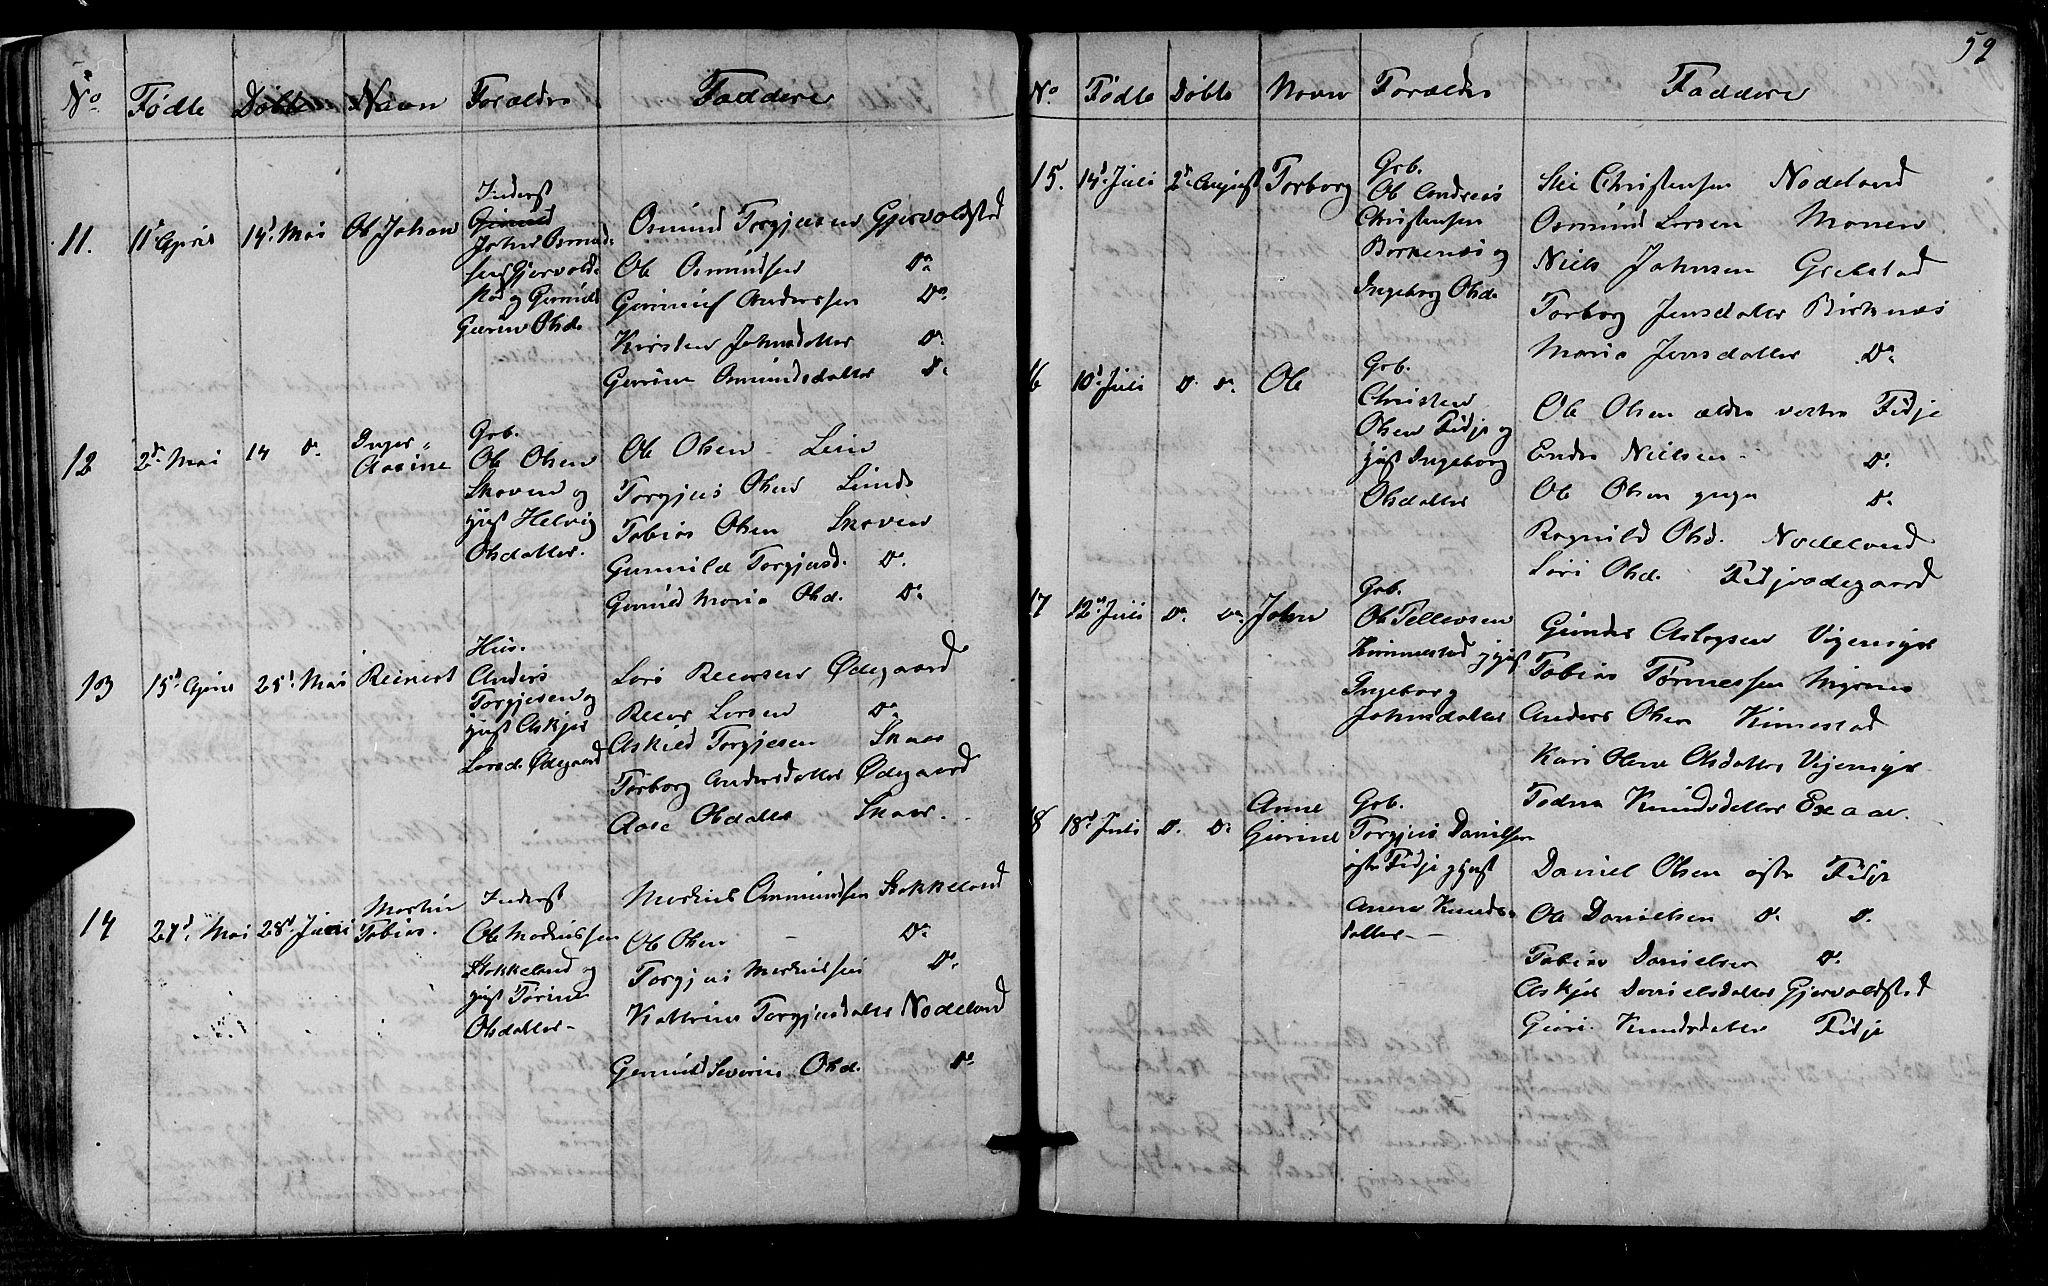 No Fødte Døbte Navn Forældre Faddere
11. 11t April 14d Mai Ole Johan
Inderst
John Osmund-
sen Gjervold-
stad og Gunild
Gurine Olsd.
Osmund Torgjusen Gjervoldstad
Ole Osmundsen Do
Gunnuf Anderssen Do
Kirsten Johnsdatter Do
Gurine Osmundsdatter Do
12 2d Mai 14 Do Inger
Aasine
Grb.
Ole Olsen
Skoven og
Helvig
Olsdatter.
Ole Olsen Lund
Torgjus Olsen Lunde
Tobias Olsen Skoven
Gunnild Torgjusd. Do
Gunild Maria Olsd. Do
13 15d April 25d Mai Reinert
Hus.
Anders
Torgjesen og
Askjer
Larsd. Ødegaard
Lars Reiersen Ødegaard
Reier Larsen Do
Askild Torgjesen Skaar
Torborg Andersdatter Ødegaard
Aase Olsdatter Skaar.
14 27d Mai 28d Juni
Tobias.
Inderst
Ole
Stokkeland og
Torine
Olsdatter
Markus Omundsen Stokkeland
Ole Olsen Do
Torgjus Markussen Do
Kathrine Torgjusdatter Nodeland
Gunnild Severine Olsd. Do
59
No Fødte Døbte Navn Forældre Faddere
15. 14d Juli 2d August Torborg
Grb.
Ole Andreas
Christensen
Birkenes og
Ingeborg Olsd.
Christensen Nodeland
Osmund Larsen Monen
Niels Johnsen Grebstad
Torborg Jensdatter Birkenæs
Maria Jensdatter Do
16 10d Juli Do Do Ole
Grb.
Christen
Olsen Fidje og
Ingeborg
Olsdatter
Ole Olsen ældre vestre Fidje
Endre Nielsen Do
Ole Olsen yngre Do
Ragnild Olsd. Nodeland
Lars Olsd. Fidjeødegaard
17 12d Juli Do Do John
Grb.
Ole Tellevsen
Kimmestad
Ingeborg
Johnsdatter
Gunder Aslogsen
Tobias
Anders Olsen Kimestad
Kari Olene Olsdatter
Knudsdatter
18 18d Juli Do Do Anne
Gurine
Grb.
Torgjus Danielsen
østre Fidje
Anne Knuds-
datter
Daniel Olsen østre Fidje
Ole Danielsen Do Do
Tobias Danielsen Do
Askjer Danielsdatter Gjervoldstad
Guri Knudsdatter Fidje